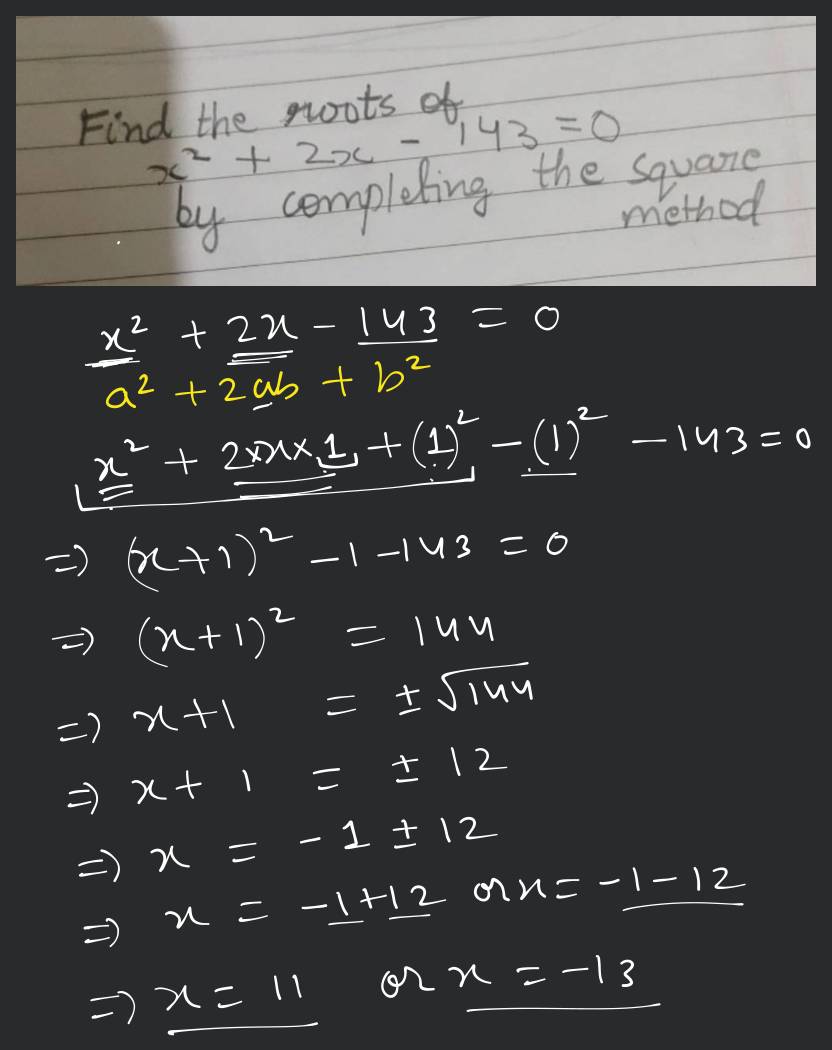 Find the roots of
x² + 2x - 143 = 0
by completing the square
method
x² + 2x - 143 = 0
a² + 2ab + b²
x² + 2×x×1 + (1)² - (1)² - 143 = 0
⇒ (x+1)² - 1 - 143 = 0
⇒ (x+1)² = 144
⇒ x+1 = ± √144
⇒ x + 1 = ± 12
⇒ x = -1 ± 12
⇒ x = -1+12 or x = -1-12
⇒ x = 11 or x = -13